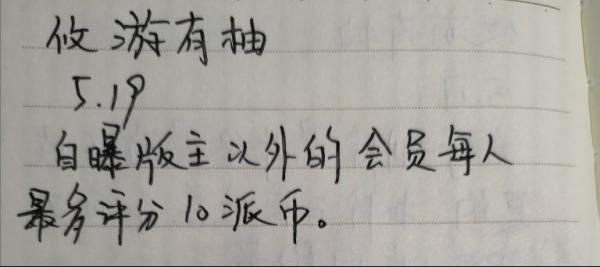 攸游有柚
5.19
自曝版主以外的会员每人
最多评分10派币。